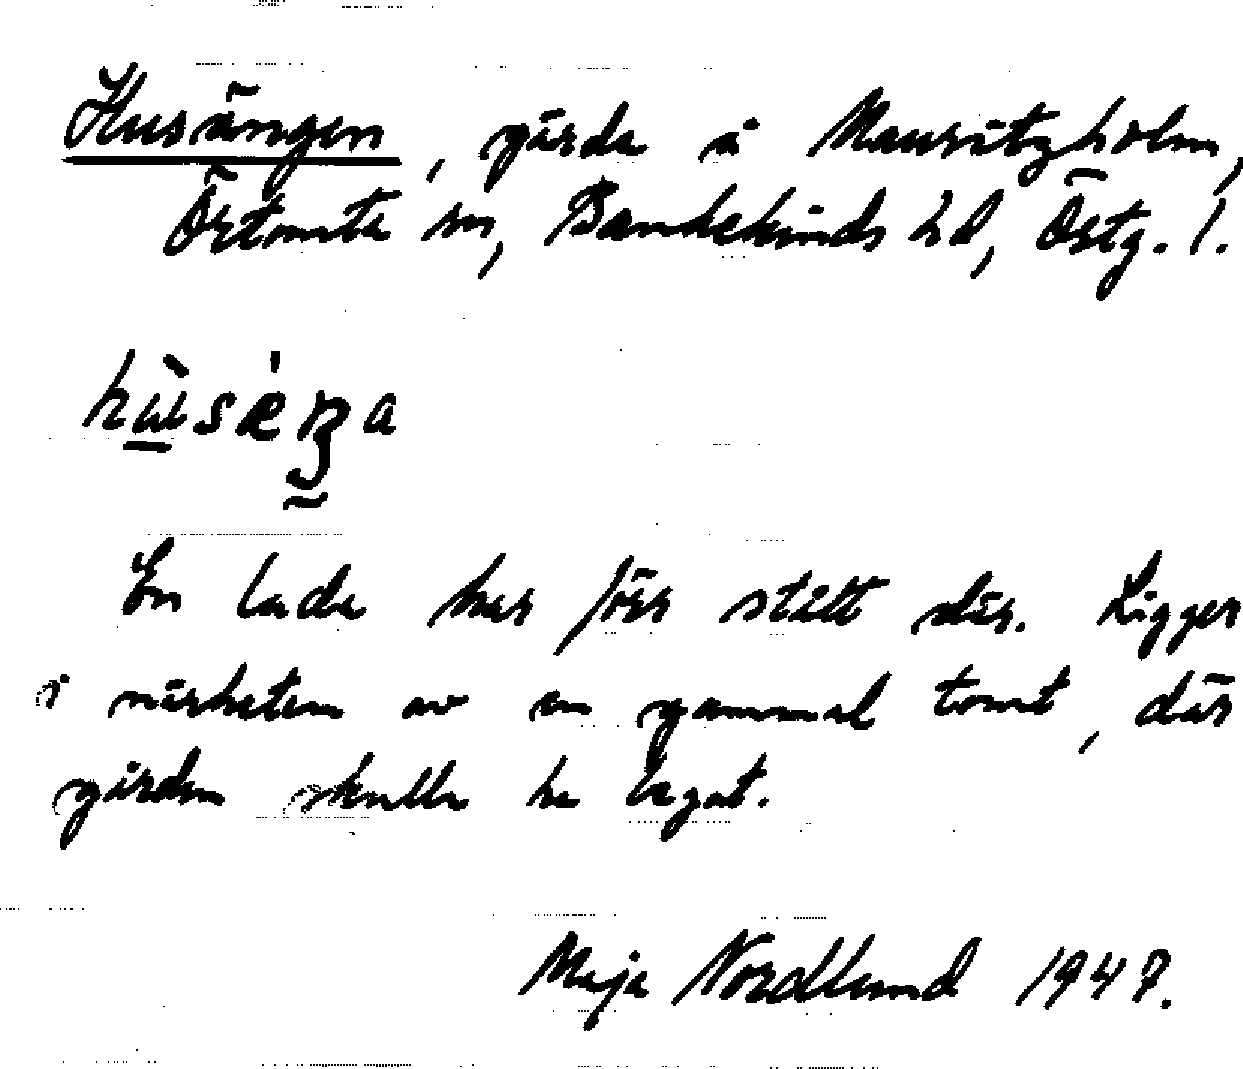 Husängen, gärde å Mauritzholm,
Örtomta sn, Bankekinds hd, Östg. l.
hùsǽŋa
En lada har förr stått där. Ligger
i närheten av en gammal tomt, där
gården skulle ha legat.
Maja Nordlund 1947.